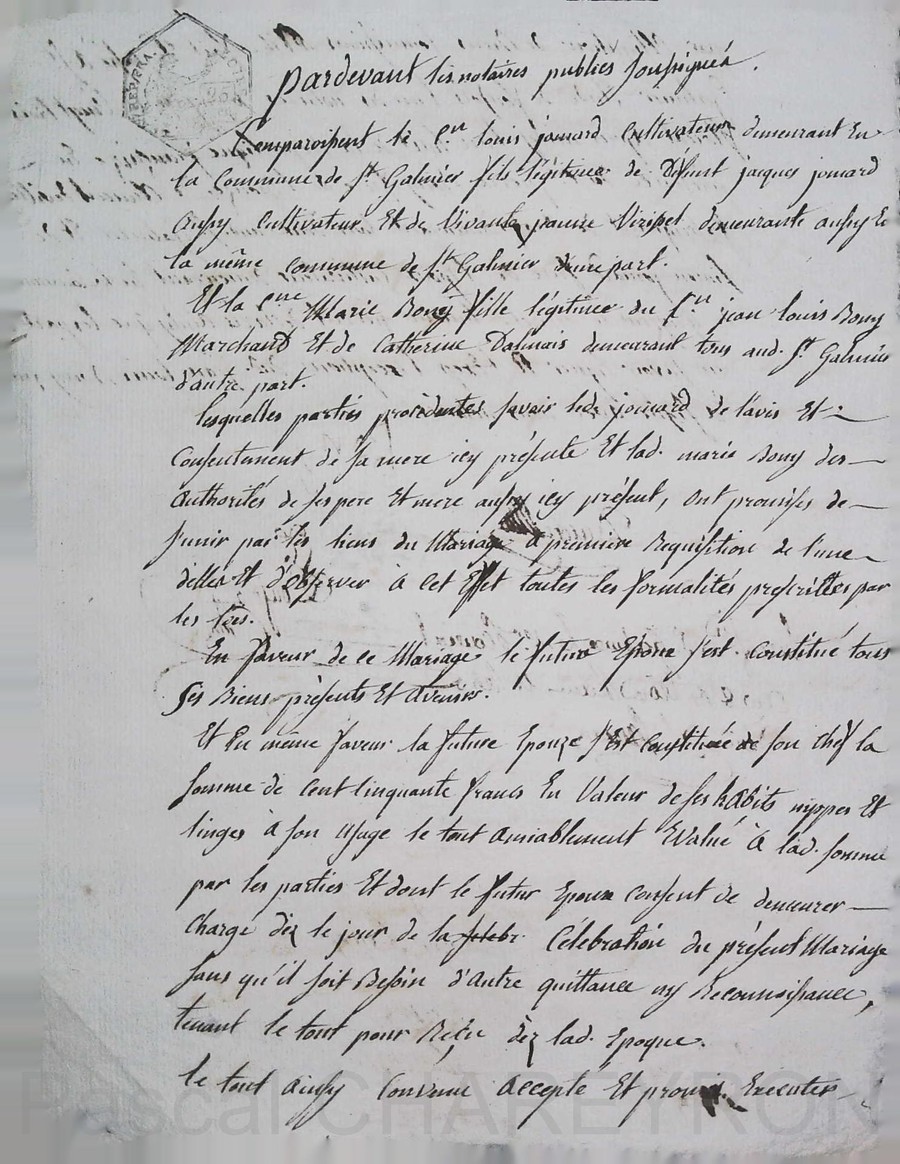 REP. FRA.
pardevant les notaires publics soussignés.
Comparoissent le Cen louis jomard Cultivateur demeurant En
la Commune de St Galmier fils légitime de Défunt jacques jomard
aussy Cultivateur Et de Vivante jeanne demeurante aussy E
la même commune de St Galmier d'une part.
Et la Cene Marie Bony fille légitime du Cen jean louis Bony
Marchand Et de Catherine Dalmais demeurant tous aud. St Galmier
d'autre part.
lesquelles parties procédentes savoir led. jomard de l'avis Et
Consentement de sa mere icy présente Et lad. marie Bony des
authorités de ses pere Et mere aussy icy présent, ont promises de
s'unir par les liens du Mariage a premiere Requisition de l'une
d'elles Et d'observer à cet Effet toutes les formalités prescrittes par
les lois.
En faveur de ce Mariage le futur Epoux s'est Constitué tous
ses Biens présents Et avenirs.
Et En même faveur la future Epouze s'Est Constituée de son chef la
somme de Cent Cinquante francs En Valeur de ses habits nippes Et
linges à son usage le tout amiablement Evalué à lad. somme
par les parties Et dont le futur Epoux Consent de demeurer
Chargé déz le jour de la Célébration du présent Mariage
sans qu'il soit Besoin d'autre quittance ny Reconnoissance,
tenant le tout pour Reçu dèz lad. Epoque.
le tout ainsy Convenu accepté Et promis Executer
Pascal CHAREYRON